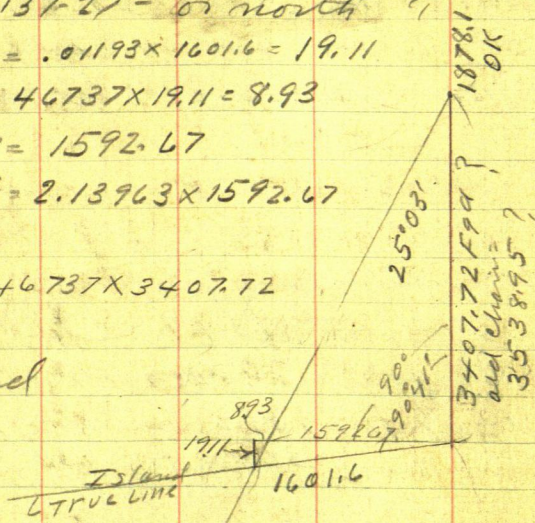 or north
= .01193 x 1601.6 = 19.11
46737 x 19.11 = 8.93
= 1592.67
= 2.13963 x 1592.67
46737 x 3407.72
1878.1
OK
25°03'
3407.72 F9d ?
old chain =
3538.95 ?
90°
90°41'
893
19.11
1592.67
1601.6
Island
True Line